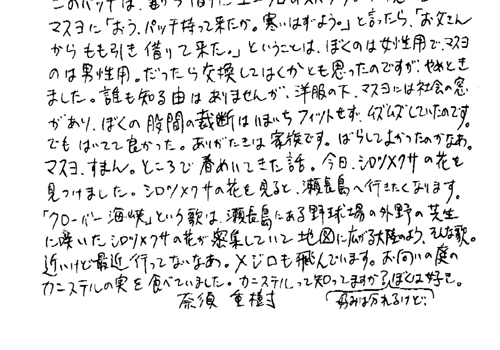 このパッチは、
マスヨに「おう、パッチ持って来たか。寒いはずよう。」と言ったら、「お父さん
からもも引き借りて来た。」ということは、ぼくのは女性用で、マスヨ
のは男性用。だったら交換してはくかとも思ったのですが、やめとき
ました。誰も知る由はありませんが、洋服の下、マスヨには社会の窓
があり、ぼくの股間の裁断はいまいちフィットせず、ムズムズしていたのです。
でもはいてて良かった。ありがたきは家族です。ばらしてよかったのかなあ。
マスヨ、すまん。ところで春めいてきた話。今日、シロツメクサの花を
見つけました。シロツメクサの花を見ると、瀬長島へ行きたくなります。
「クローバー海峡」という歌は、瀬長島にある野球場の外野の芝生
に咲いたシロツメクサの花が密集していて地図に広がる大陸のよう、そんな歌。
近いけど最近行ってないなあ。メジロも飛んでいます。お向いの庭の
カニステルの実を食べていました。カニステルって知ってますか?ぼくは好き。
奈須重樹 (好みは分れるけど…)